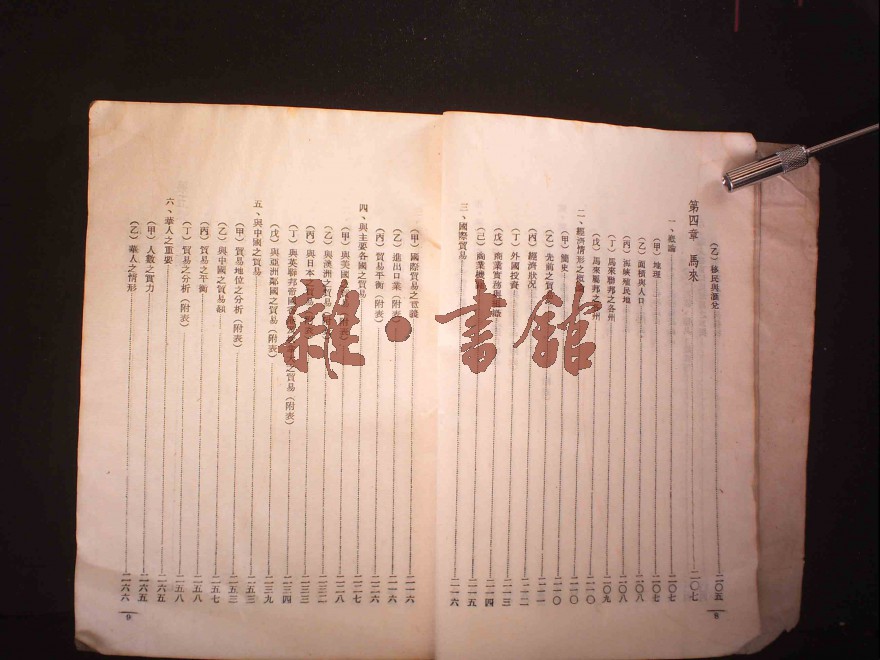 (乙) 移民與滙兌 二〇五
第四章 馬來 二〇七
一、概論 二〇七
(甲) 地理 二〇七
(乙) 面積與人口 二〇八
(丙) 海峽殖民地 二〇八
(丁) 馬來聯邦之各州 二〇九
(戊) 馬來屬邦之各州 二一〇
二、經濟情形之概 二一〇
(甲) 簡史 二一〇
(乙) 先前之貿 二一一
(丙) 經濟狀況 二一二
(丁) 外國投資 二一三
(戊) 商業實務與組織 二一四
(己) 商業機 二一五
三、國際貿易 二一六
8
(甲) 國際貿易之 二一六
(乙) 進出口業(附表) 二一六
(丙) 貿易平衡(附表) 二二六
四、與主要各國之貿易 二二七
(甲) 與美國 二二八
(乙) 與澳洲之貿易 二三二
(丙) 與日本之貿易
(丁) 與英聯邦帝國 之貿易(附表) 二三四
(戊) 與亞洲鄰國之貿易(附表) 二三九
五、與中國之貿易 二五三
(甲) 貿易地位之分析(附表) 二五三
(乙) 與中國之貿易額 二五七
(丙) 貿易之平衡 二五八
(丁) 貿易之分析(附表) 二五八
六、華人之重要 二六五
(甲) 人數之實力 二六五
(乙) 華人之情形 二六六
9
雜·書館